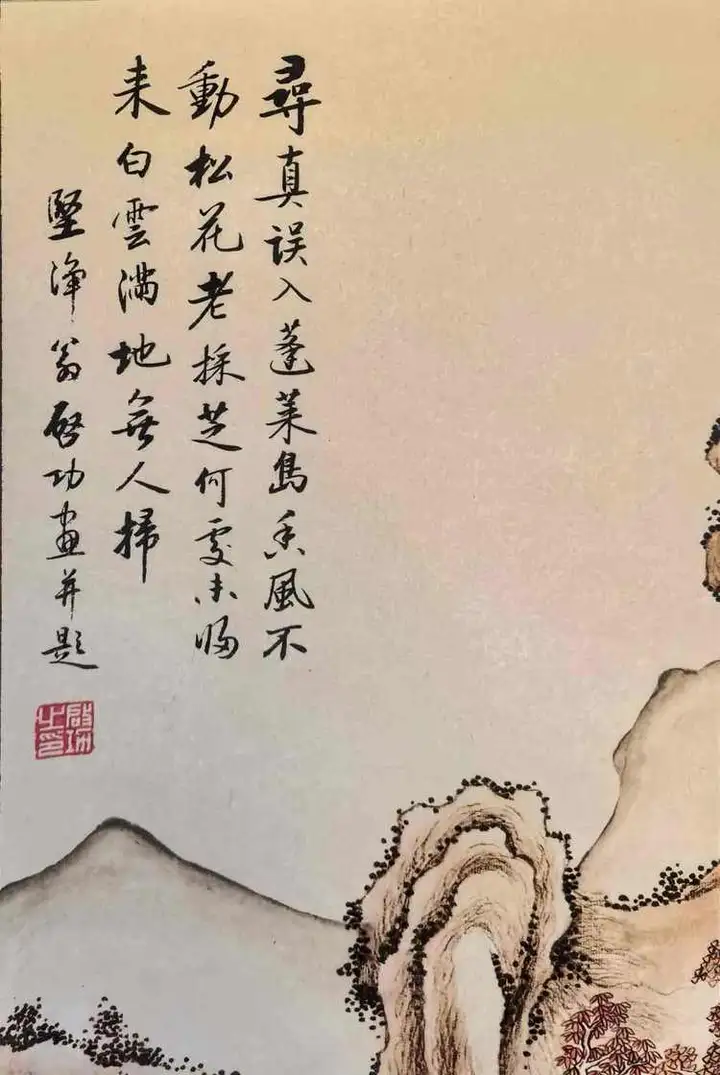 尋真误入蓬莱島香風不
動松花老採芝何處未歸
来白雲满地無人掃
堅淨翁啓功畫并題
啟功之印